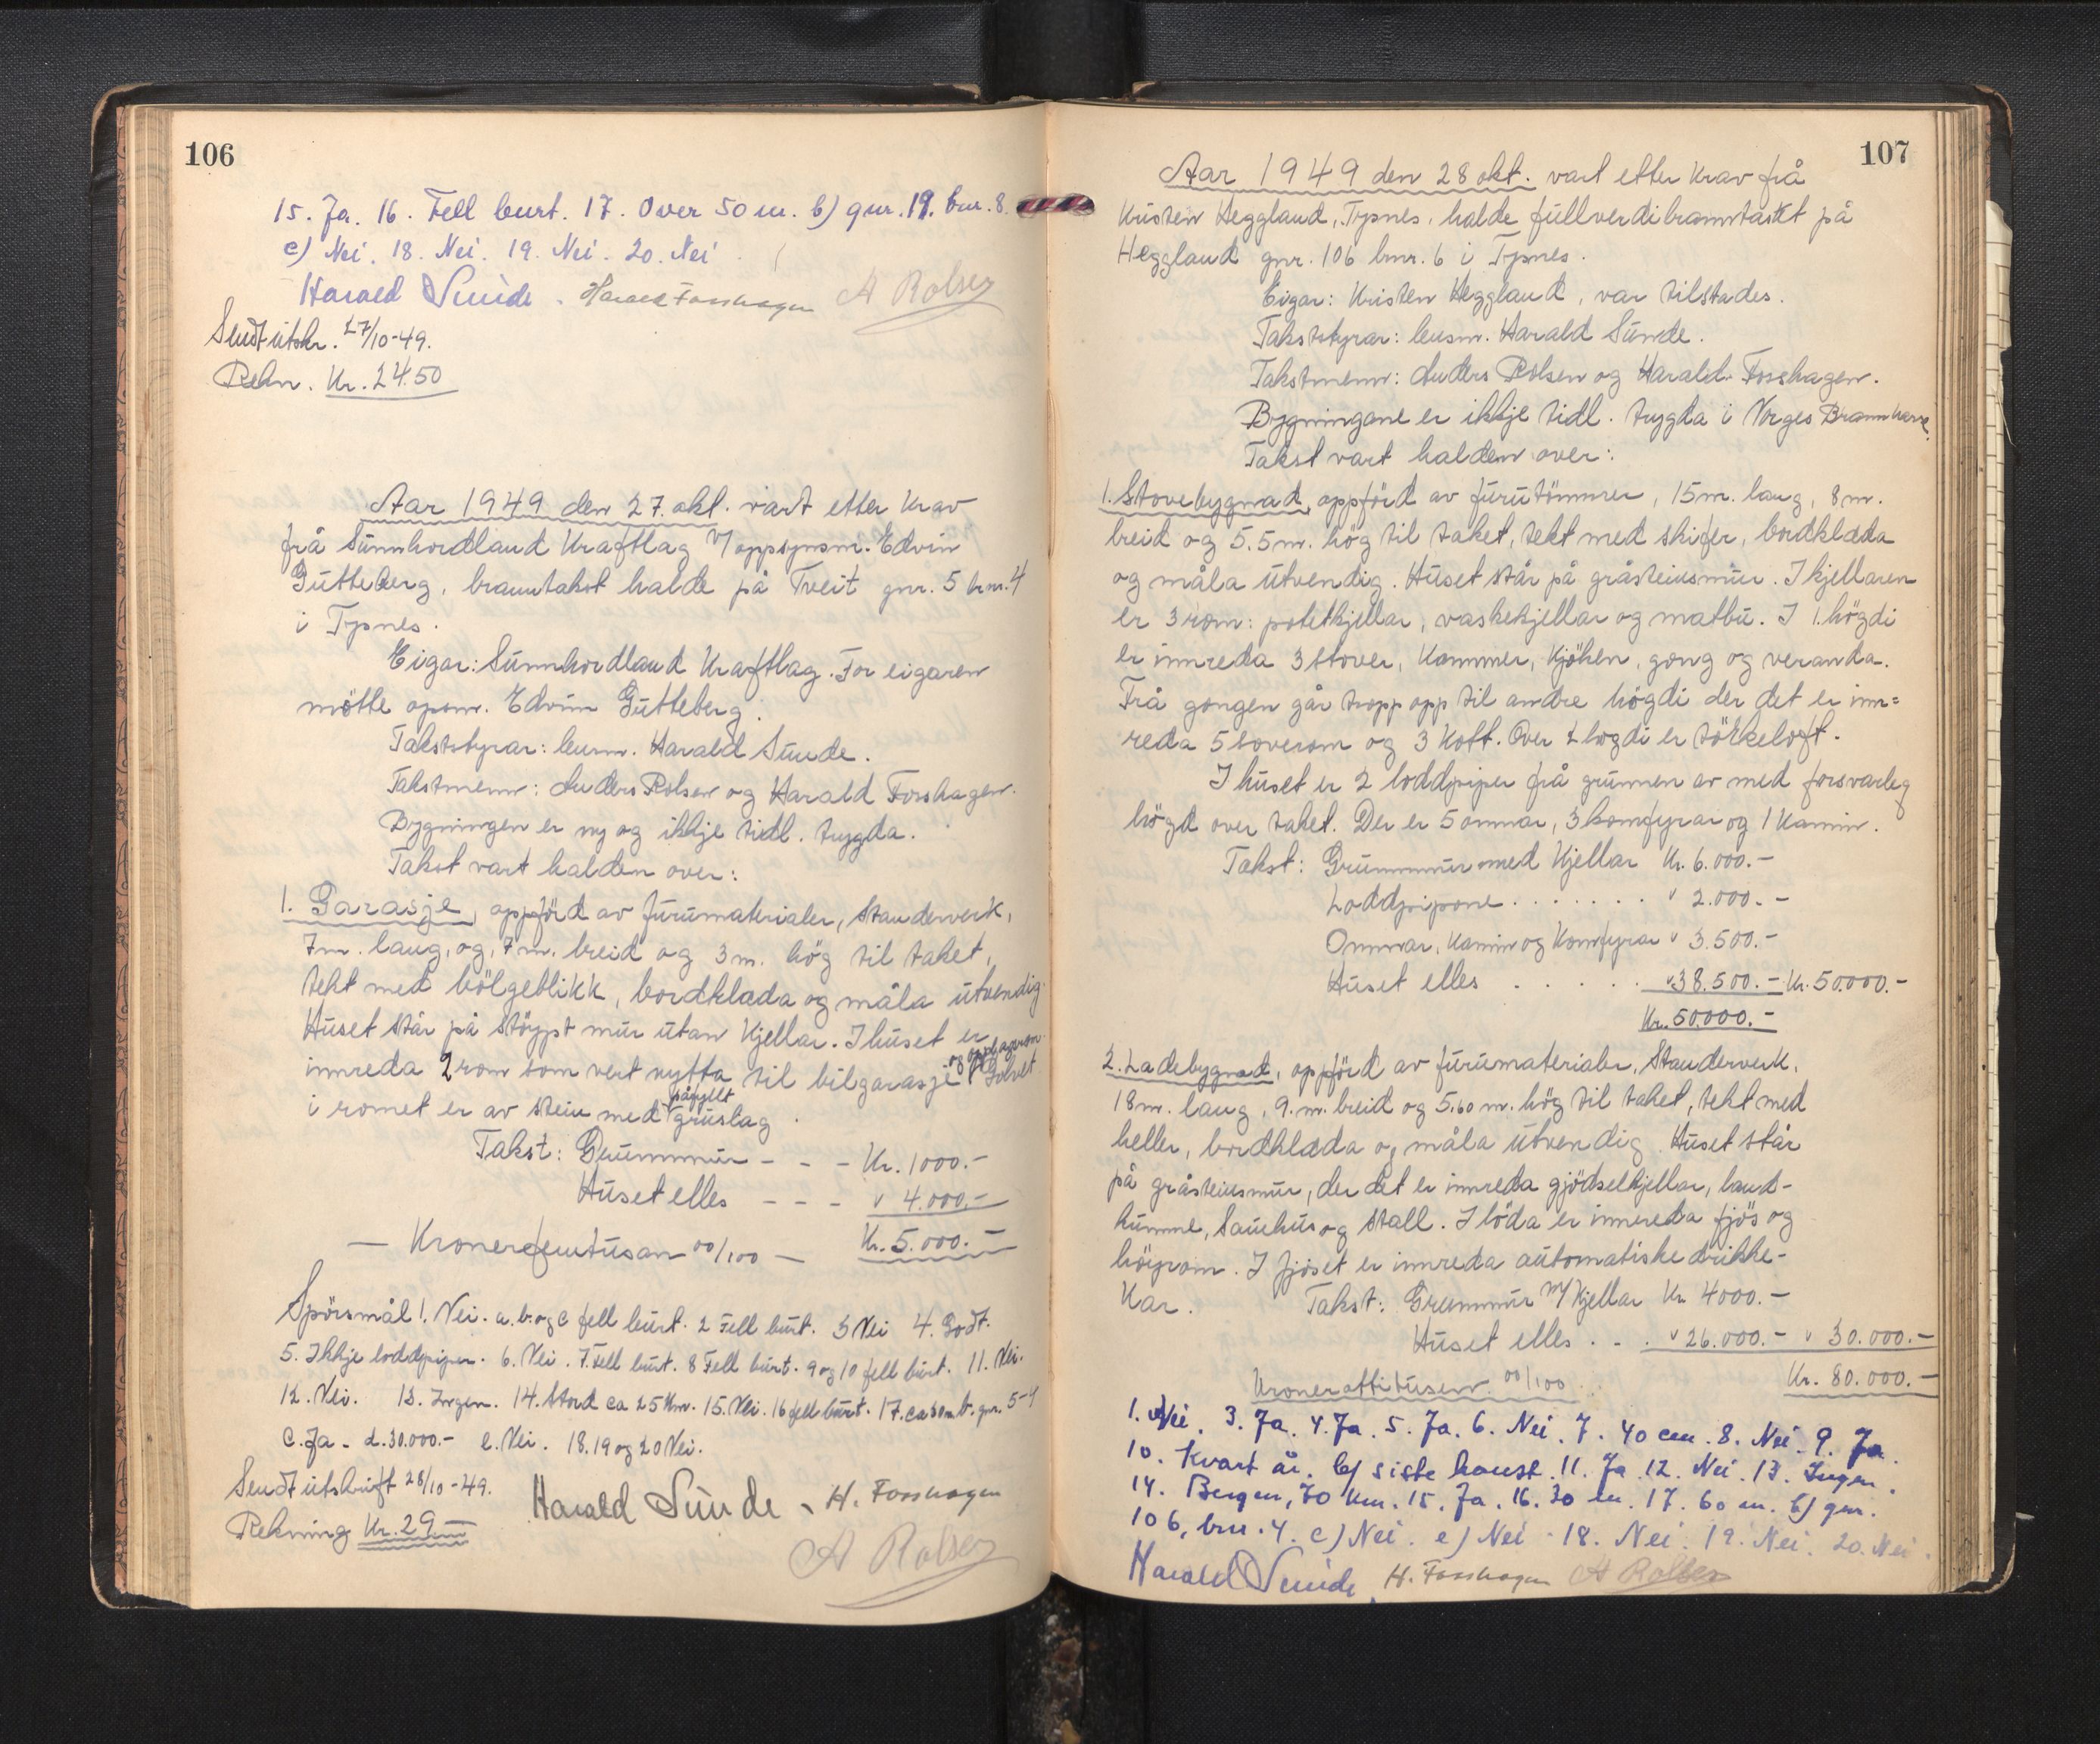 106
15. Ja. 16. Fell burt. 17. Over 50 m. b) gnr. 19. bnr. 8.
c) Nei. 18. Nei. 19. Nei. 20. Nei
Harald Sunde. Harald Fosshagen A Rolsen
Sendt útskr. 27/10-49.
Rekn. Kr. 24.50
Aar 1949 den 27. okt. vart etter krav
frå Sunnhordland Kraftlag v/ oppsynsm. Edvin
Gutteberg, branntakst halde på Tveit gnr. 5 bnr. 4
i Tysnes.
Eigar: Sunnhordland Kraftlag. For eigaren
mötte opsm. Edvin Gutteberg.
Takststyrar: lensm. Harald Sunde.
Takstmenn: Anders Rolsen og Harald Fosshagen.
Bygningen er ny og ikkje tidl. trygda.
Takst vart halden over:
1. Garasje, oppförd av furumaterialer, standerverk,
7 m. lang, og, 7 m. breid og 3 m. hög til taket,
tekt med bölgeblikk, bordklæda og måla utvendig.
Huset står på stöypt mur utan kjellar. I huset er
innreda 2 rom som vert nytta til bilgarasje og opplagsrom. Golvet
i romet er av stein med påfyllt gruslag.
Takst: Grunnmur - - - Kr. 1000.-
Huset elles - - - " 4.000.-
— Kronerfemtusan 00/100 — Kr. 5.000.-
Spörsmål 1. Nei. a. b. og c fell burt. 2 Fell burt. 3 Nei 4. Godt.
5. Ikkje loddpiper. 6. Nei. 7. Fell burt. 8 Fell burt. 9 og 10 fell burt. 11. Nei.
12. Nei. 13. Ingen. 14. Stord ca 25 km. 15. Nei. 16 fell burt. 17. ca 30 m b. gnr. 5-4
C. Ja. d. 30.000.- e. Nei. 18. 19 og 20 Nei.
Sendt utskrift 28/10-49.
Rekning Kr. 29.—
Harald Sunde. H. Fosshagen
A Rolsen
107
Aar 1949 den 28 okt. vart etter krav frå
Kristen Heggland, Tysnes, halde fullverdibranntakst på
Heggland gnr. 106 bnr. 6 i Tysnes.
Eigar: Kristen Heggland, var tilstades.
Takststyrar: lensm. Harald Sunde.
Takstmenn: Anders Rolsen og Harald Fosshagen.
Bygningane er ikkje tidl. trygda i Norges Brannkasse.
Takst vart halden over:
1. Stovebygnad, oppförd av furutömmer, 15 m. lang, 8 m.
breid og 5.5 m. hög til taket, tekt med skifer, bordklæda
og måla utvendig. Huset står på gråsteinsmur. I kjellaren
er 3 rom: potetkjellar, vaskekjellar og matbu. I 1. högdi
er innreda 3 stover, kammer, kjöken, gong og veranda.
Frå gongen går tropp opp til andre högdi der det er inn=
reda 5 soverom og 3 kott. Over 2 högdi er törkeloft.
I huset er 2 loddpiper frå grunnen av med forsvarleg
högd over taket. Der er 5 omnar, 3 komfyrar og 1 kamin.
Takst: Grunnmur med kjellar Kr. 6.000.-
Loddpipone . . . . . . . " 2.000.-
Omnar, kamin og komfyrar " 3.500.-
Huset elles . . . . . "38.500.- Kr. 50.000.-
Kr. 50.000.-
2. Ladebygnad, oppförd av furumaterialer, Standerverk,
18 m. lang, 9. m. breid og 5.60 m. hög til taket, tekt med
heller, bordklæda og måla utvendig. Huset står
på gråsteinsmur, der det er innreda gjödselkjellar, land-
kumme, Sauehus og stall. I löda er innreda fjös og
höyrom. I fjöset er innreda automatiske drikke-
kar. Takst: Grunnmur m/kjellar Kr 4000.-
Huset elles . . . " 26.000.- " 30.000.-
Kroneråttitusen 00/100 Kr. 80.000.-
1. Nei. 3. Ja. 4. Ja. 5. Ja. 6. Nei. 7. 40 cm. 8. Nei. 9. Ja.
10. Kvart år. b) siste haust. 11. Ja 12. Nei. 13. Ingen.
14. Bergen, 70 km. 15. Ja. 16. 30 m. 17. 60 m. b) gnr.
106, bnr. 4. c) Nei. e) Nei. 18. Nei. 19. Nei. 20. Nei.
Harald Sunde H. Fosshagen A Rolsen